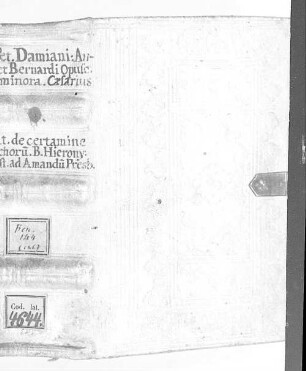 et. Damiani. An-
et Bernardi Opusc.
minora. Cæsarius
t. de certamine
chorū. B. Hierony:
st. ad Amandū Presb.
Ben.
144
Cod. lat.
4644.